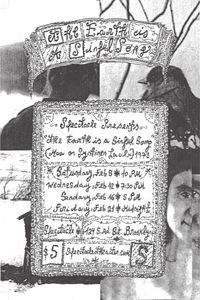 The Earth is
A Sinful Song
Spectacle Presents
The Earth is a Sinful Song
(Maa on Syntinen Laulu) 1973
Saturday, Feb 8 10 PM
Wednesday, Feb 12 7:30 PM
Sunday, Feb 16 5 PM
Friday, Feb 21 Midnight
Spectacle 124 S. 3rd St. Brooklyn
$5 spectacletheater.com S